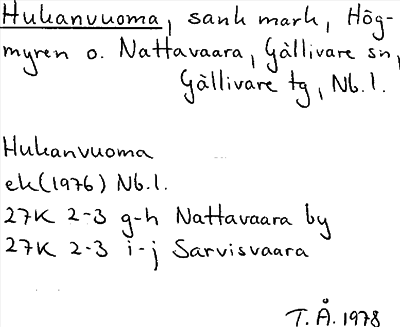 Hukanvuoma, sank mark, Hög-
myren o. Nattavaara, Gällivare sn,
Gällivare tg, Nb.l.
Hukanvuoma
ek(1976) Nb.l.
27K 2-3 g-h Nattavaara by
27K 2-3 i-j Sarvisvaara
T.Å. 1978